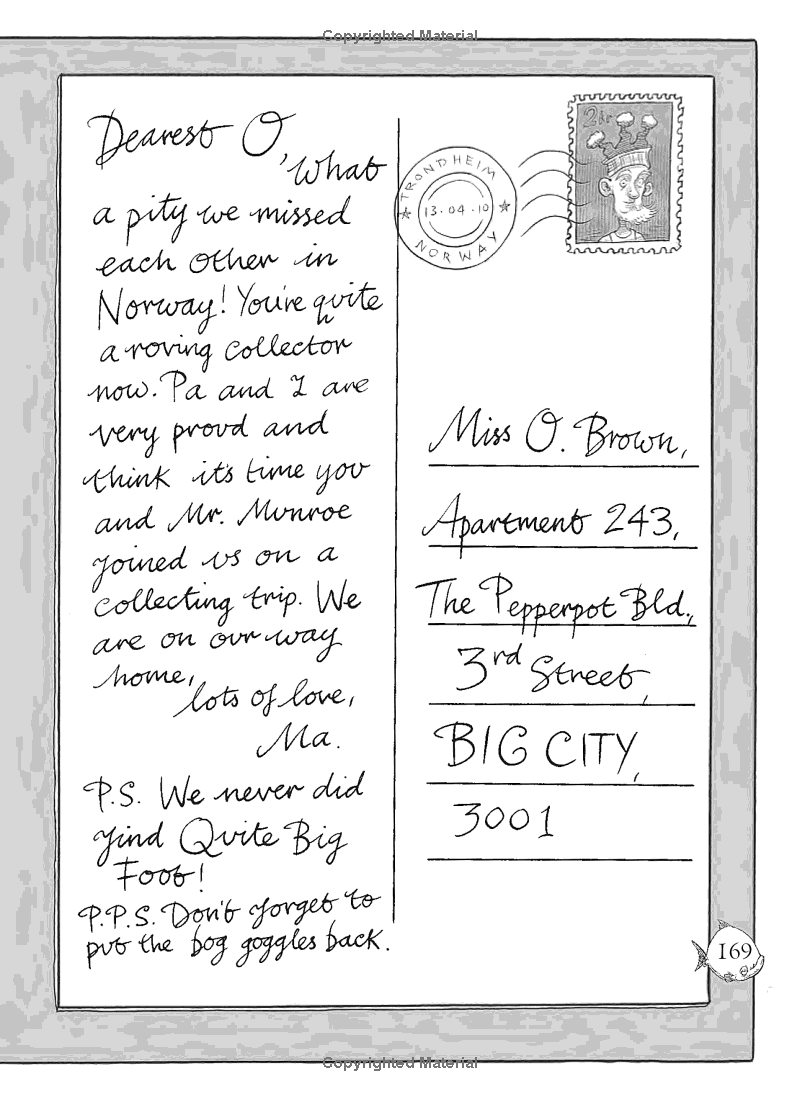 Copyrighted Material
Dearest O,
What
a pity we missed
each other in
Norway! You're quite
a roving collector
now. Pa and I are
very proud and
think it's time you
and Mr. Munroe
joined us on a
collecting trip. We
are on our way
home,
lots of love,
Ma.
P.S. We never did
find Quite Big
Foot!
P.P.S. Don't forget to
put the bog goggles back.
TRONDHEIM
13·04·10
NORWAY
2kr
Miss O. Brown,
Apartment 243,
The Pepperpot Bld.,
3rd Street,
BIG CITY,
3001
169
Copyrighted Material